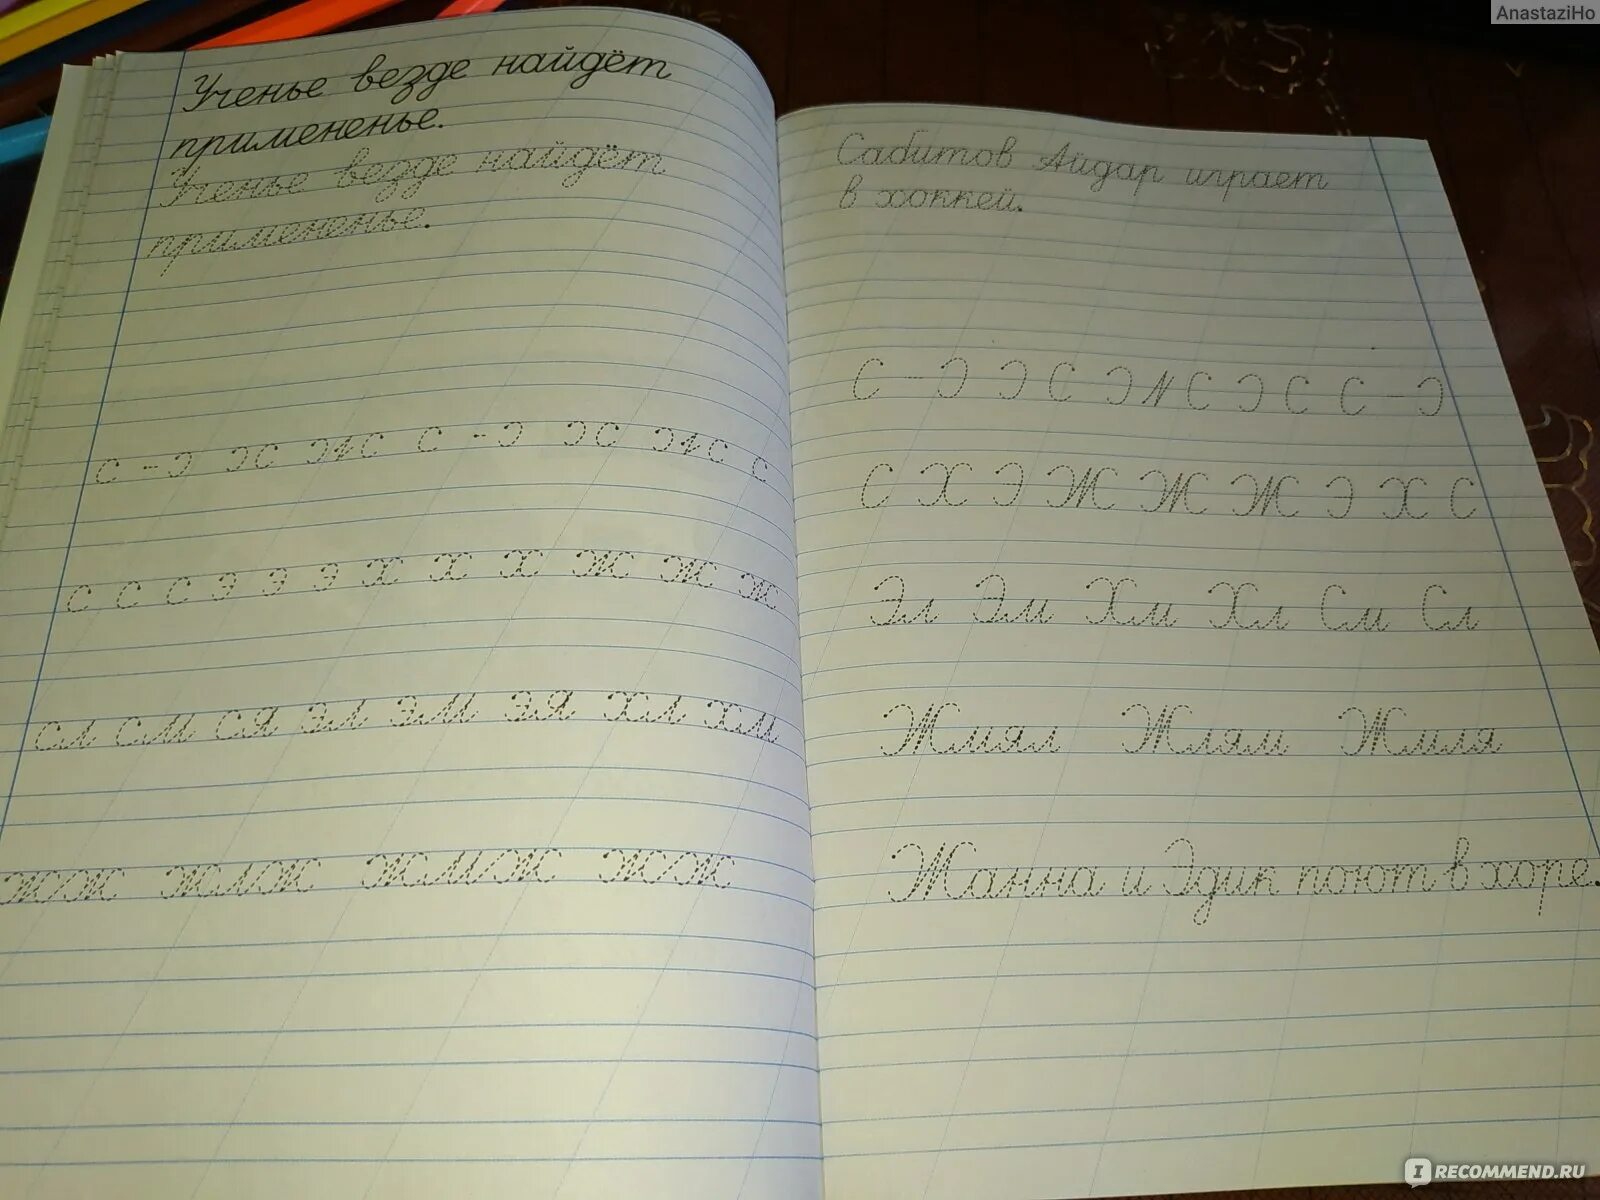 AnastaziHo
Ученье везде найдёт
примененье.
Ученье везде найдёт
примененье.
с - э эс эис с - э эс эис с
с с с э э э х х х ж ж ж
сл см ся эл эм эя хл хм
жж жлж жмж жж
Сабитов Айдар играет
в хоккей.
С - Э Э С Э И С Э С С - Э
С Х Э Ж Ж Ж Э Х С
Эл Эм Хм Хл См Сл
Жмял Жлям Жмля
Жанна и Эдик поют в хоре.
IRECOMMEND.RU